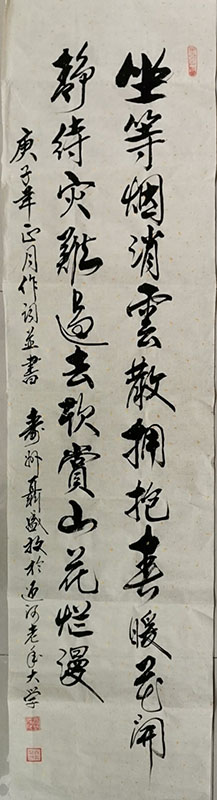 坐等烟消雲散拥抱春暖花開
静待灾難過去欣赏山花烂漫
庚子年正月作词並書 寿州聂盛放於迎河老年大学